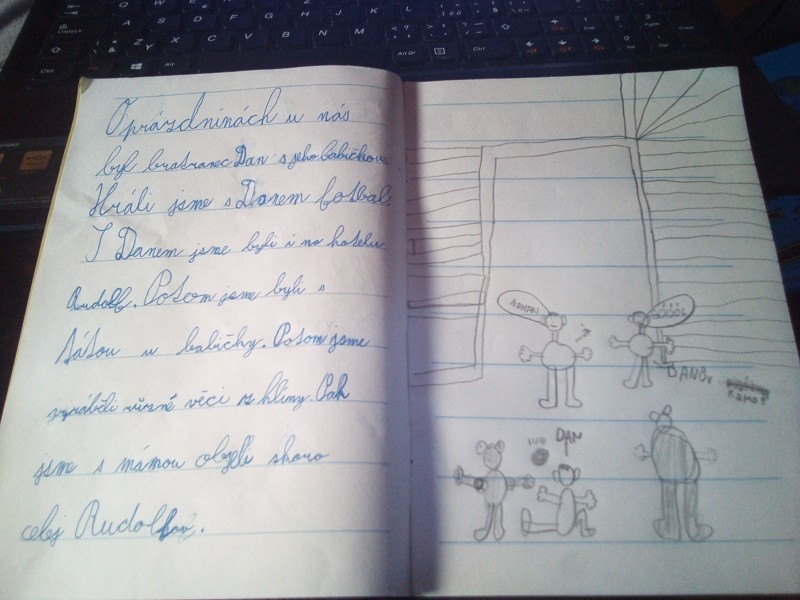 O prázdninách u nás
byl bratranec Dan s jeho babičkou
Hráli jsme s Danem fotbal.
S Danem jsme byli i na hotelu
Rudolf. Potom jsme byli s
tátou u babičky. Potom jsme
vyráběli různé věci z hlíny. Pak
jsme s mámou objeli skoro
celej Rudolfov.
GÓÓÓL
DANŮV
KÁMOŠ
DAN